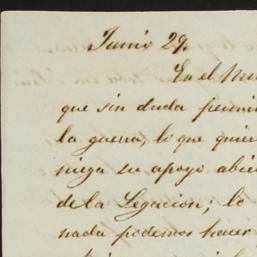 Junio 29.
En el
que sin duda
la guerra, lo que
niega su apoyo
de la Legacion; lo
nada podemos hacer